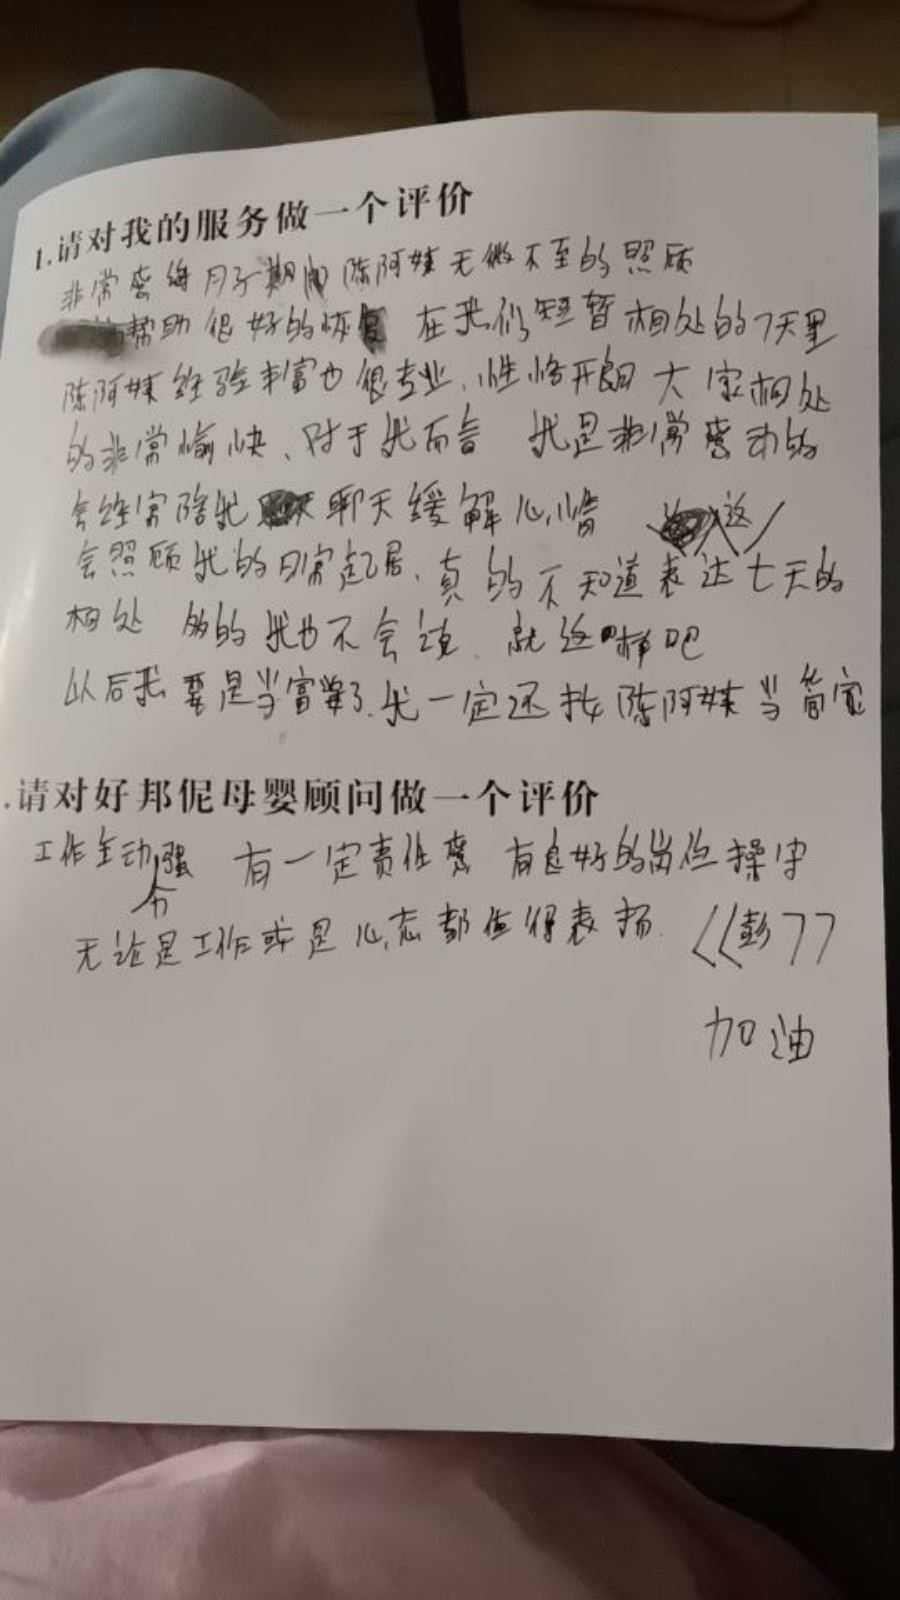 1.请对我的服务做一个评价
非常感谢月子期间陈阿妹无微不至的照顾
帮助很好的恢复 在我们短暂相处的7天里
陈阿妹经验丰富也很专业、性格开朗 大家相处
的非常愉快、对于我而言 我是非常感动的
会经常陪我 聊天缓解心情 这
会照顾我的日常起居、真的不知道表达七天的
相处 多的我也不会说、就这样吧
以后我要是当富婆了、我一定还找陈阿妹当管家
.请对好邦伲母婴顾问做一个评价
工作主动强 有一定责任感 有良好的岗位操守
无论是工作或是心态都值得表扬. 《彭》
加油